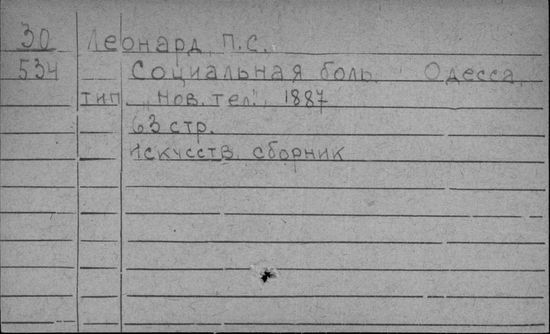 30 Леонард, П.С.
534 Социальная боль. Одесса,
тип. "Нов. тел.", 1887
63 стр.
Искусств. сборник